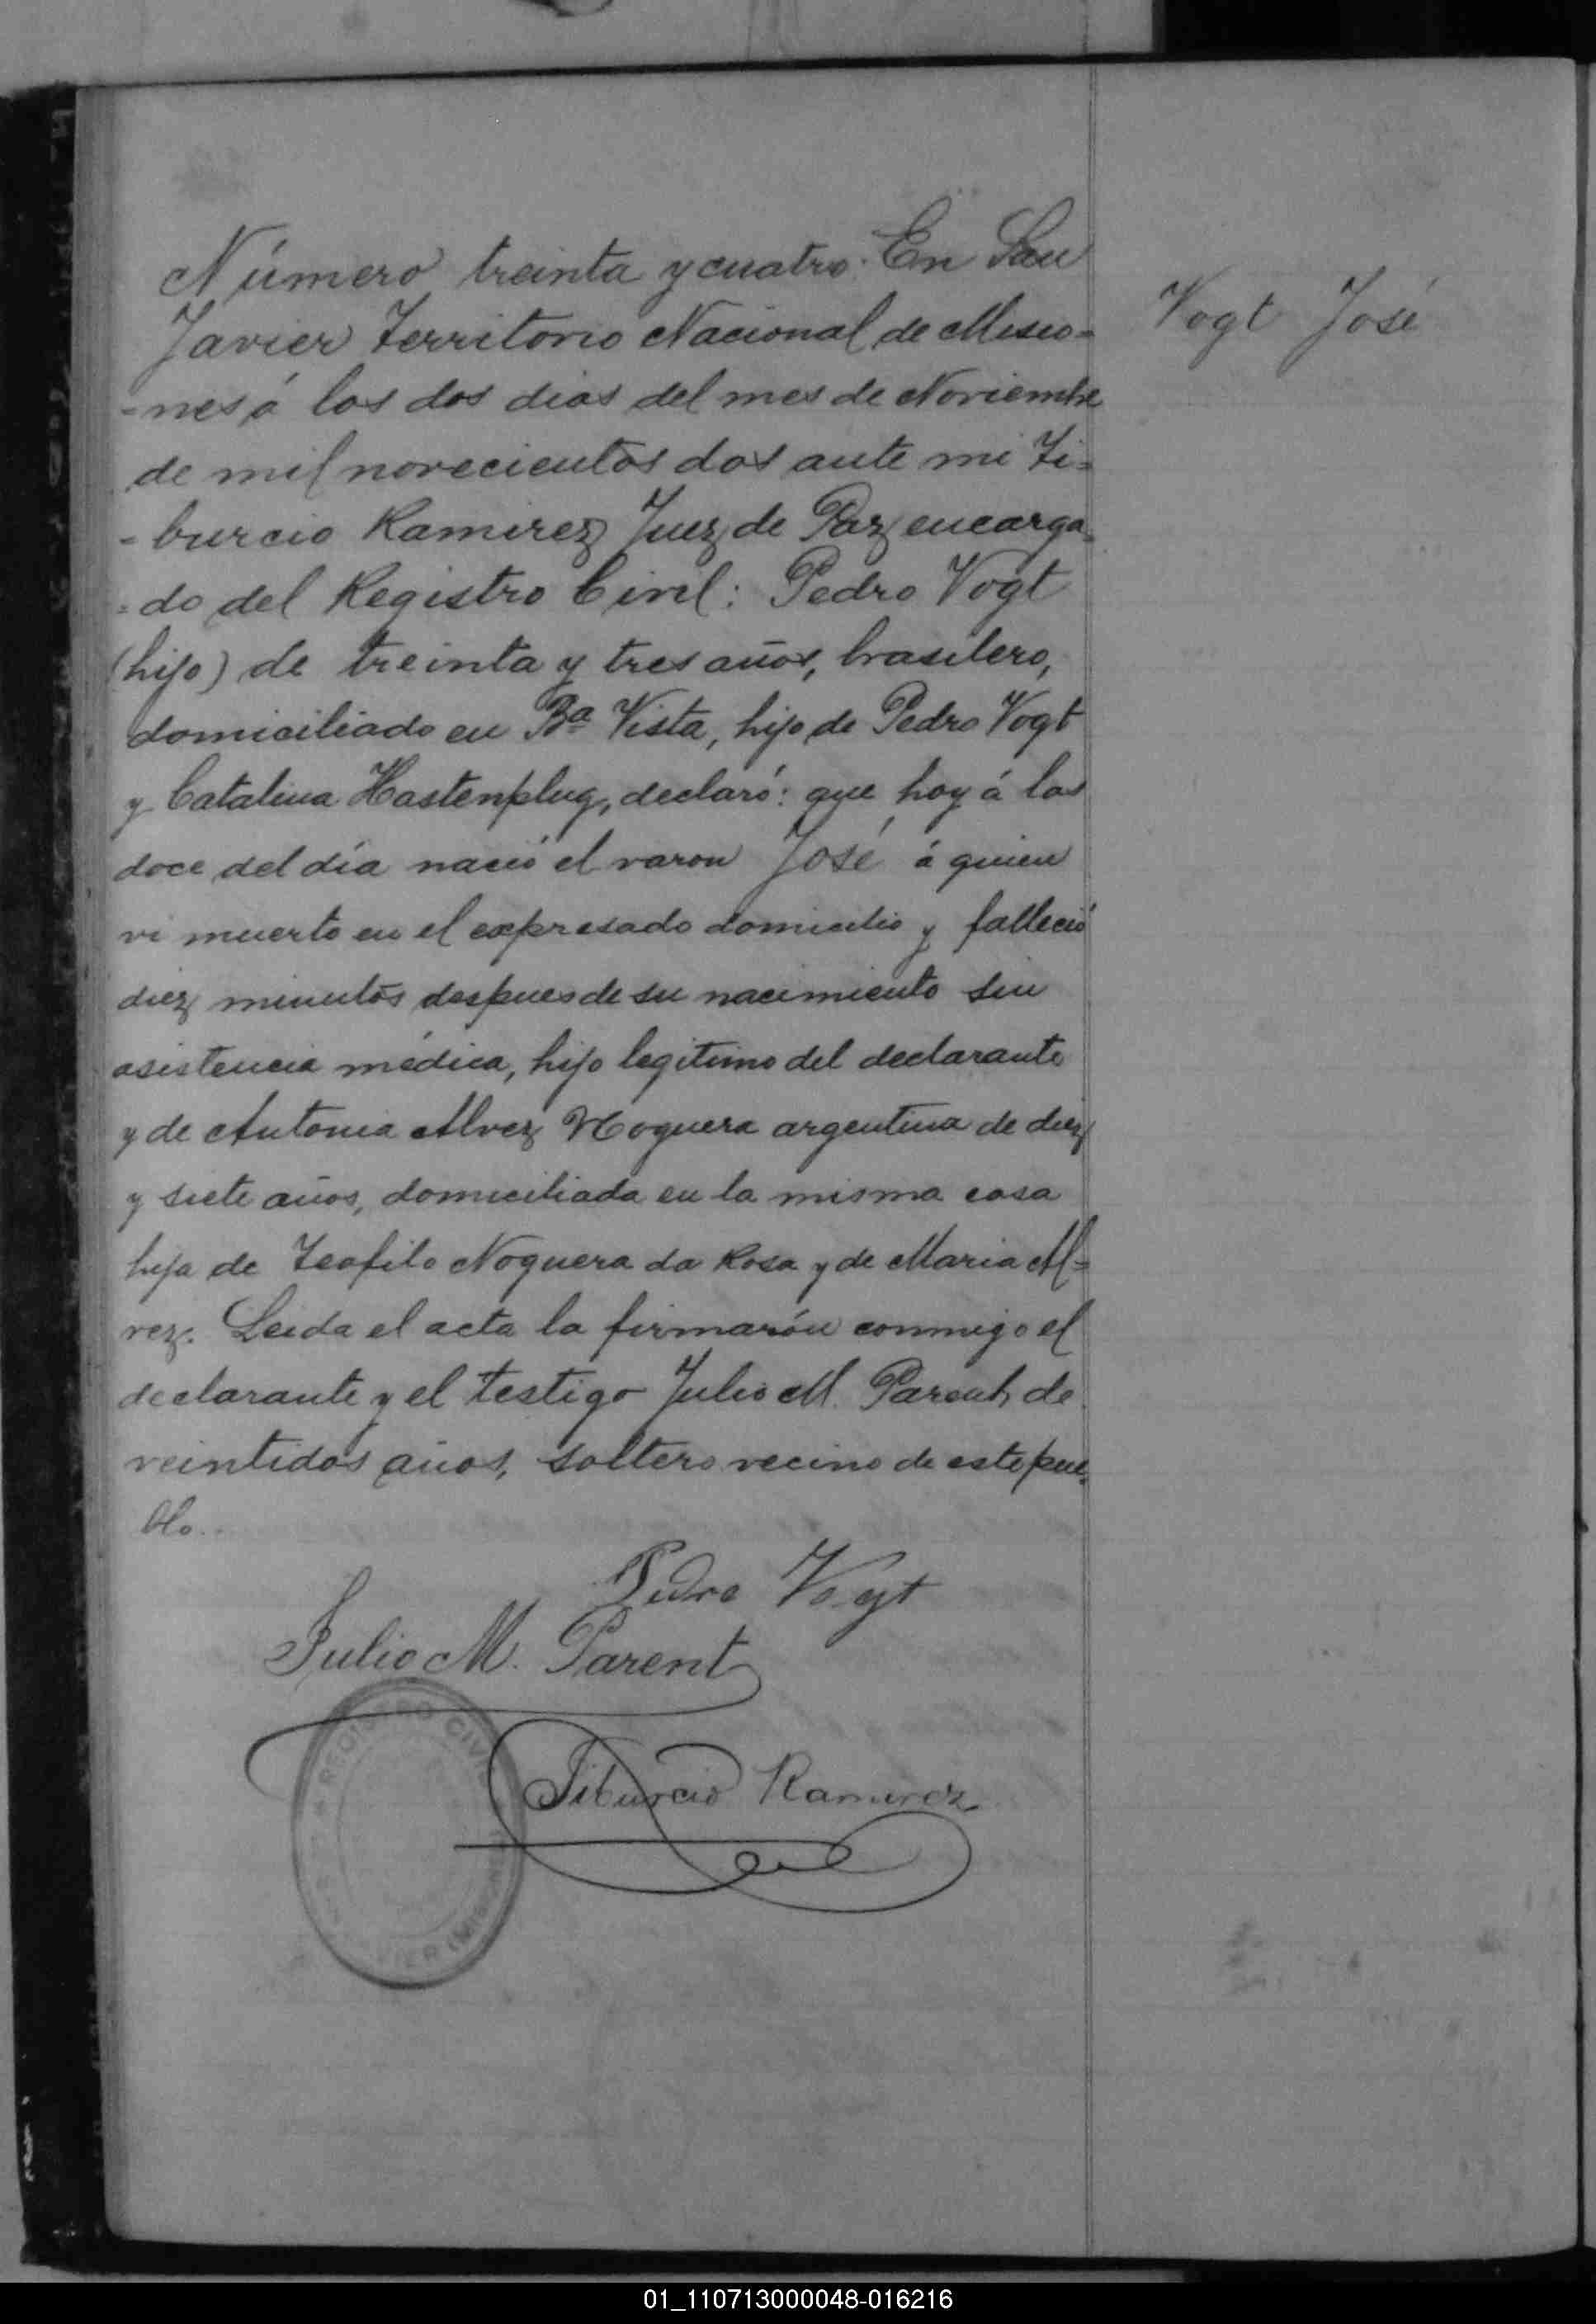 Número treinta y cuatro. En San
Javier Territorio Nacional de Misio=
=nes á los dos dias del mes de Noviembre
de mil novecientos dos ante mi Ti=
=burcio Ramirez Juez de Paz encarga=
=do del Registro Civil: Pedro Vogt
(hijo) de treinta y tres años, brasilero,
domiciliado en Bª Vista, hijo de Pedro Vogt
y Catalina Hastenplug, declaró: que hoy á las
doce del día nació el varon José á quien
vi muerto en el expresado domicilio y falleció
diez minutos despues de su nacimiento sin
asistencia médica, hijo legitimo del declarante
y de Antonia Alvez Noguera argentina de diez
y siete años, domiciliada en la misma casa
hija de Teofilo Noguera da Rosa y de Maria Al=
vez. Leida el acta la firmarón conmigo el
declarante y el testigo Julio M. Parent, de
veintidos años, soltero vecino de este pue=
blo.
Vogt José
Pedro Vogt
Julio M. Parent
REGISTRO CIVIL
Tiburcio Ramirez
01_110713000048-016216